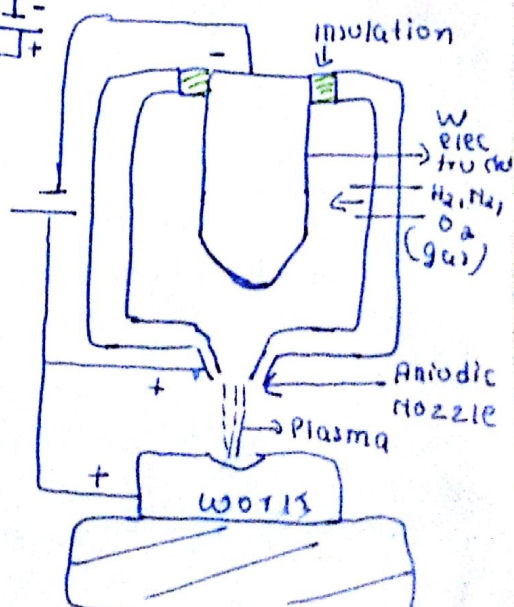 -
+
Insulation
-
W
elec
trode
H2, N2,
O2
(gas)
+
Aniodic
Nozzle
Plasma
+
Work